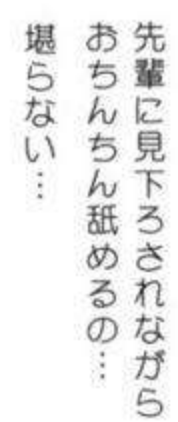 先輩に見下ろされながら
おちんちん舐めるの…
堪らない…